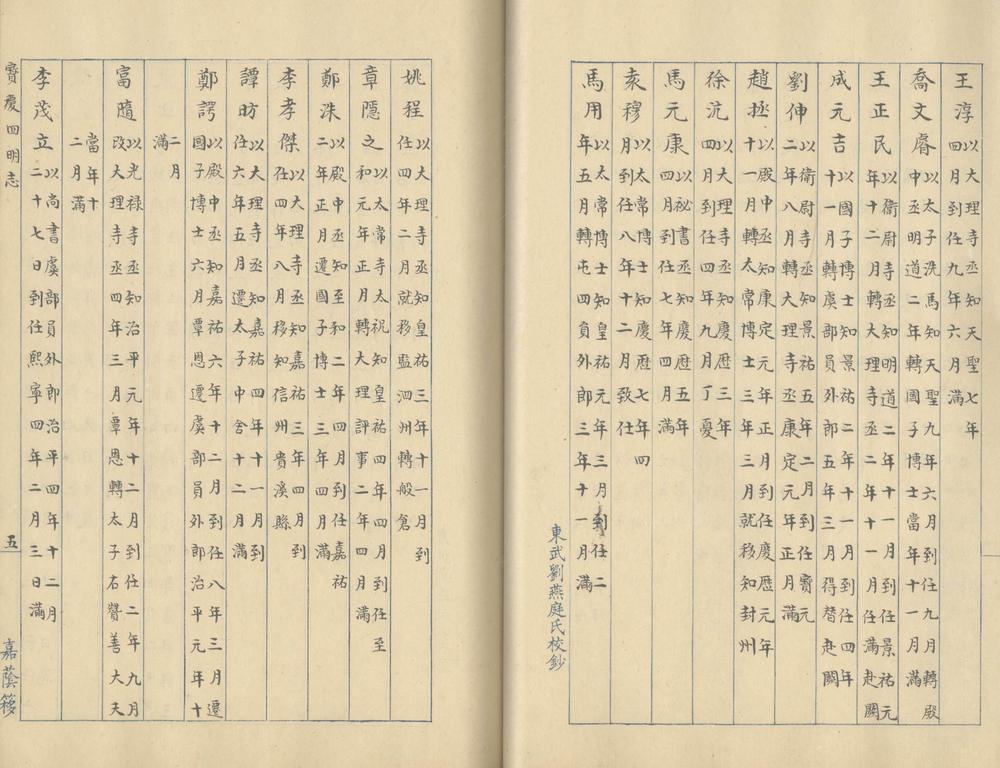 王淳以大理寺丞知天聖七年
四月到任九年六月滿
喬文睿以太子洗馬知天聖九年六月到任九月轉殿
中丞明道二年轉國子博士當年十一月滿
王正民以衛尉寺丞知明道二年十一月到任景祐元
年十二月轉大理寺丞二年十一月任滿赴闕
成元吉以國子博士知景祐二年十一月到任四年
十一月轉虞部員外郎五年三月得替赴闕
劉伸以衛尉寺丞知景祐五年二月到任寶元
二年八月轉大理寺丞康定元年正月滿
趙拯以殿中丞知康定元年正月到任慶歷元年
十一月轉太常博士三年三月就移知封州
徐沆以大理寺丞知慶歷三年
四月到任四年九月丁憂
馬元康以祕書丞知慶歷五年
四月到任七年四月滿
袁穆以太常博士知慶歷七年四
月到任八年十二月致仕
馬用以太常博士知皇祐元年三月到任二
年五月轉屯四員外郎三年十一月滿
東武劉燕庭氏校鈔
姚程以大理寺丞知皇祐三年十一月到
任四年二月就移監泗州轉般倉
章隱之以太常寺太祝知皇祐四年四月到任至
和元年正月轉大理評事二年四月滿
鄭洙以殿中丞知至和二年四月到任嘉祐
二年正月遷國子博士三年四月滿
李孝傑以大理寺丞知嘉祐三年四月到
任四年八月移知信州貴溪縣
譚昉以大理寺丞知嘉祐四年十一月到
任六年五月遷太子中舍十二月滿
鄭諤以殿中丞知嘉祐六年十二月到任八年三月遷
國子博士六月覃恩遷虞部員外郎治平元年十
二月
滿
富隨以光祿寺丞知治平元年十二月到任二年九月
改大理寺丞四年三月覃恩轉太子右贊善大夫
當年十
二月滿
李茂立以尚書虞部員外郎治平四年十二月
二十七日到任熙寧四年二月三日滿
寶慶四明志
五
嘉蔭簃